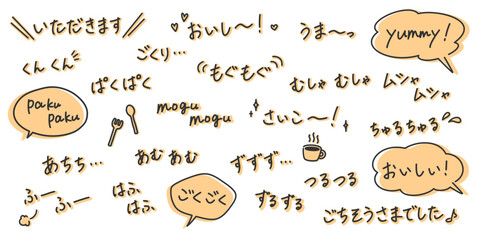 いただきます
おいし〜!
うま〜っ
yummy!
くんくん
ごくり…
ぱくぱく
もぐもぐ
むしゃ むしゃ
ムシャ
ムシャ
paku
paku
mogu
mogu
さいこ〜!
ちゅるちゅる
あちち…
あむ あむ
ずずず…
おいしい!
ふー
ふー
はふ
はふ
ごくごく
ずるずる
つるつる
ごちそうさまでした♪